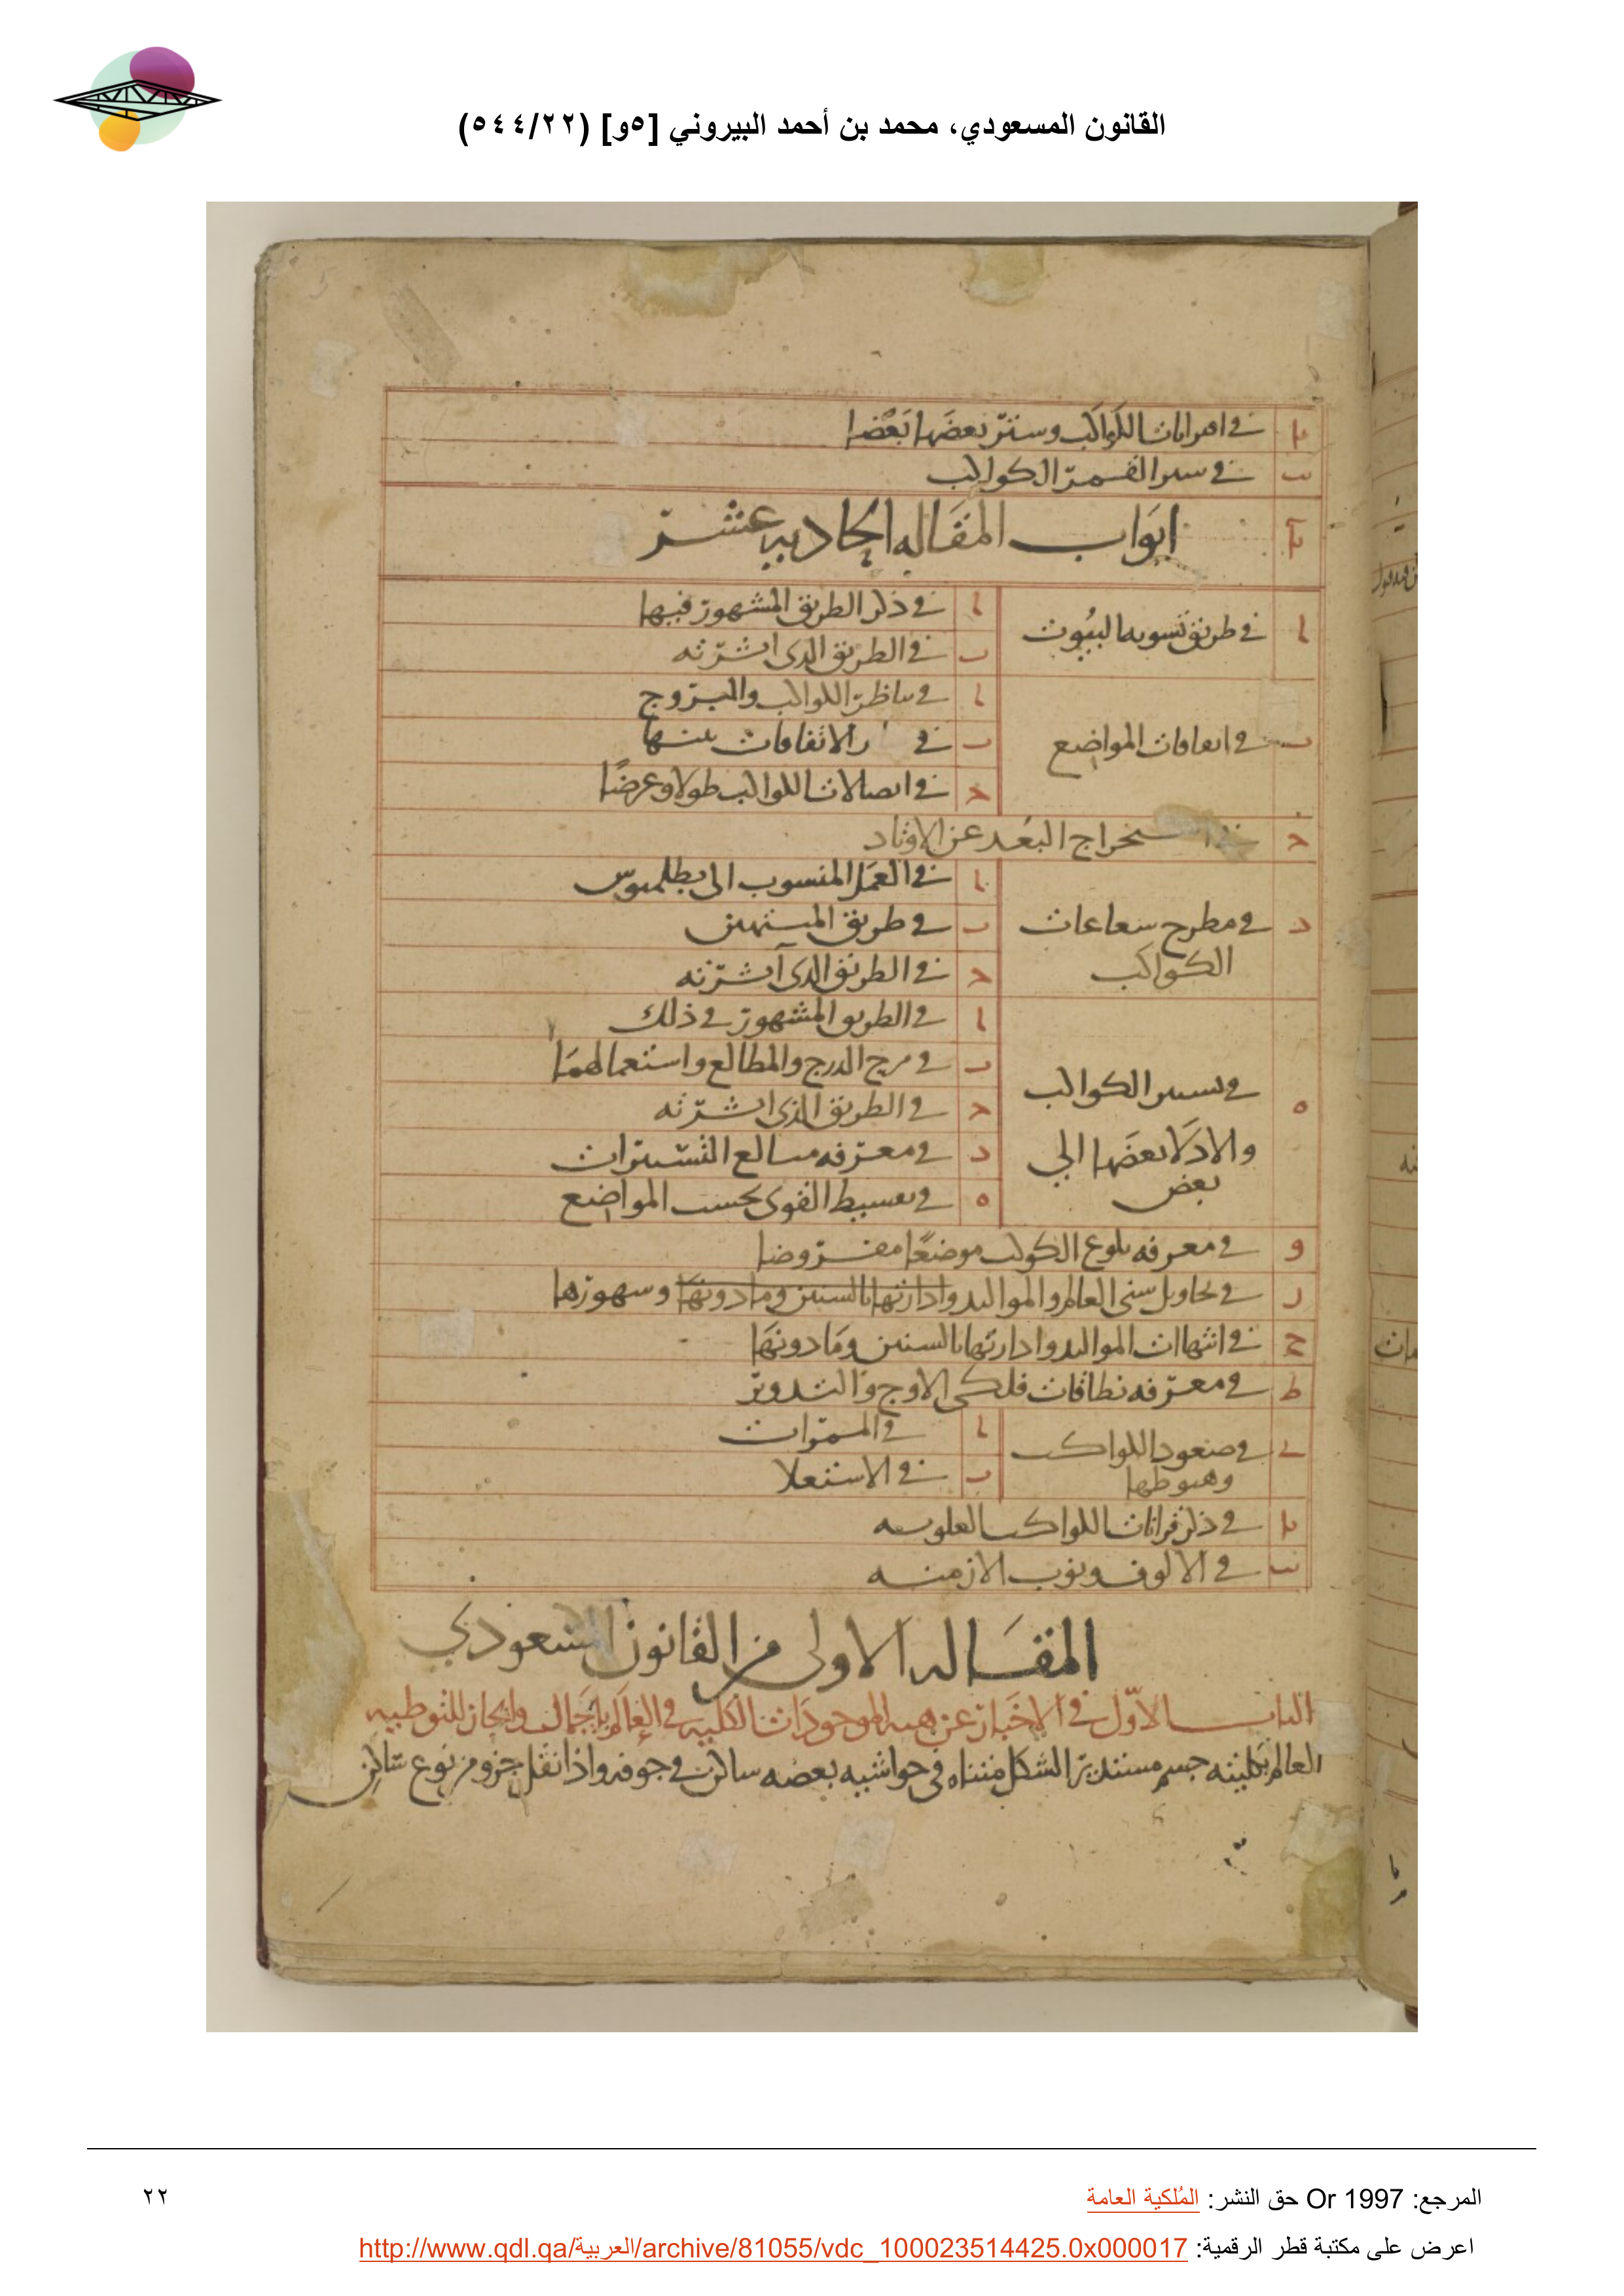 القانون المسعودي، محمد بن أحمد البيروني [٥و] (٥٤٤/٢٢)
يا في اقترانات الكواكب وستر بعضها بعضا
يب في ستر القمر الكواكب
يا ابواب المقاله الحاديه عشر
ا في طريق تسويه البيوت
ا في ذكر الطريق المشهور فيها
ب في الطريق الذي اثرته
ب في اتفاقات المواضع
ا في تناظر الكواكب والبروج
ب في الاتفاقات بينها
ج في اتصالات الكواكب طولا وعرضا
ج استخراج البعد عن الاوتاد
د في مطرح شعاعات
الكواكب
ا في العمل المنسوب الى بطلميوس
ب في طريق
ج في الطريق الذي اثرته
ه في تسيير الكواكب
والادلا بعضها الي
بعض
ا في الطريق المشهور في ذلك
ب في مزج الدرج والمطالع واستعمالهما
ج في الطريق الذي اثرته
د في معرفه مبالغ التسييرات
ه في تقسيط القوى بحسب المواضع
و في معرفه بلوغ الكوكب موضعا مفروضا
ز في تحاويل سني العالم والمواليد وادارتها بالسنين وما دونها وشهورها
ح في انتهاات المواليد وادارتها بالسنين وما دونها
ط في معرفه نطاقات فلكي الاوج والتدوير
ي في صعود الكواكب
وهبوطها
ا في الممرات
ب في الاستعلا
يا في ذكر قرانات الكواكب العلويه
يب في الالوف ونوب الازمنه
المقاله الاولى من القانون المسعودي
الباب الاول في الاخبار عن هيه الموجودات الكليه في العالم باجمال وايجاز للتوطيه
العالم بكليته جسم مستدير الشكل متناه في حواشيه بعضه ساكن في جوفه واذا نقل جزو من نوع ساكن
المرجع: Or 1997 حق النشر: المُلكية العامة
٢٢
اعرض على مكتبة قطر الرقمية: http://www.qdl.qa/العربية/archive/81055/vdc_100023514425.0x000017